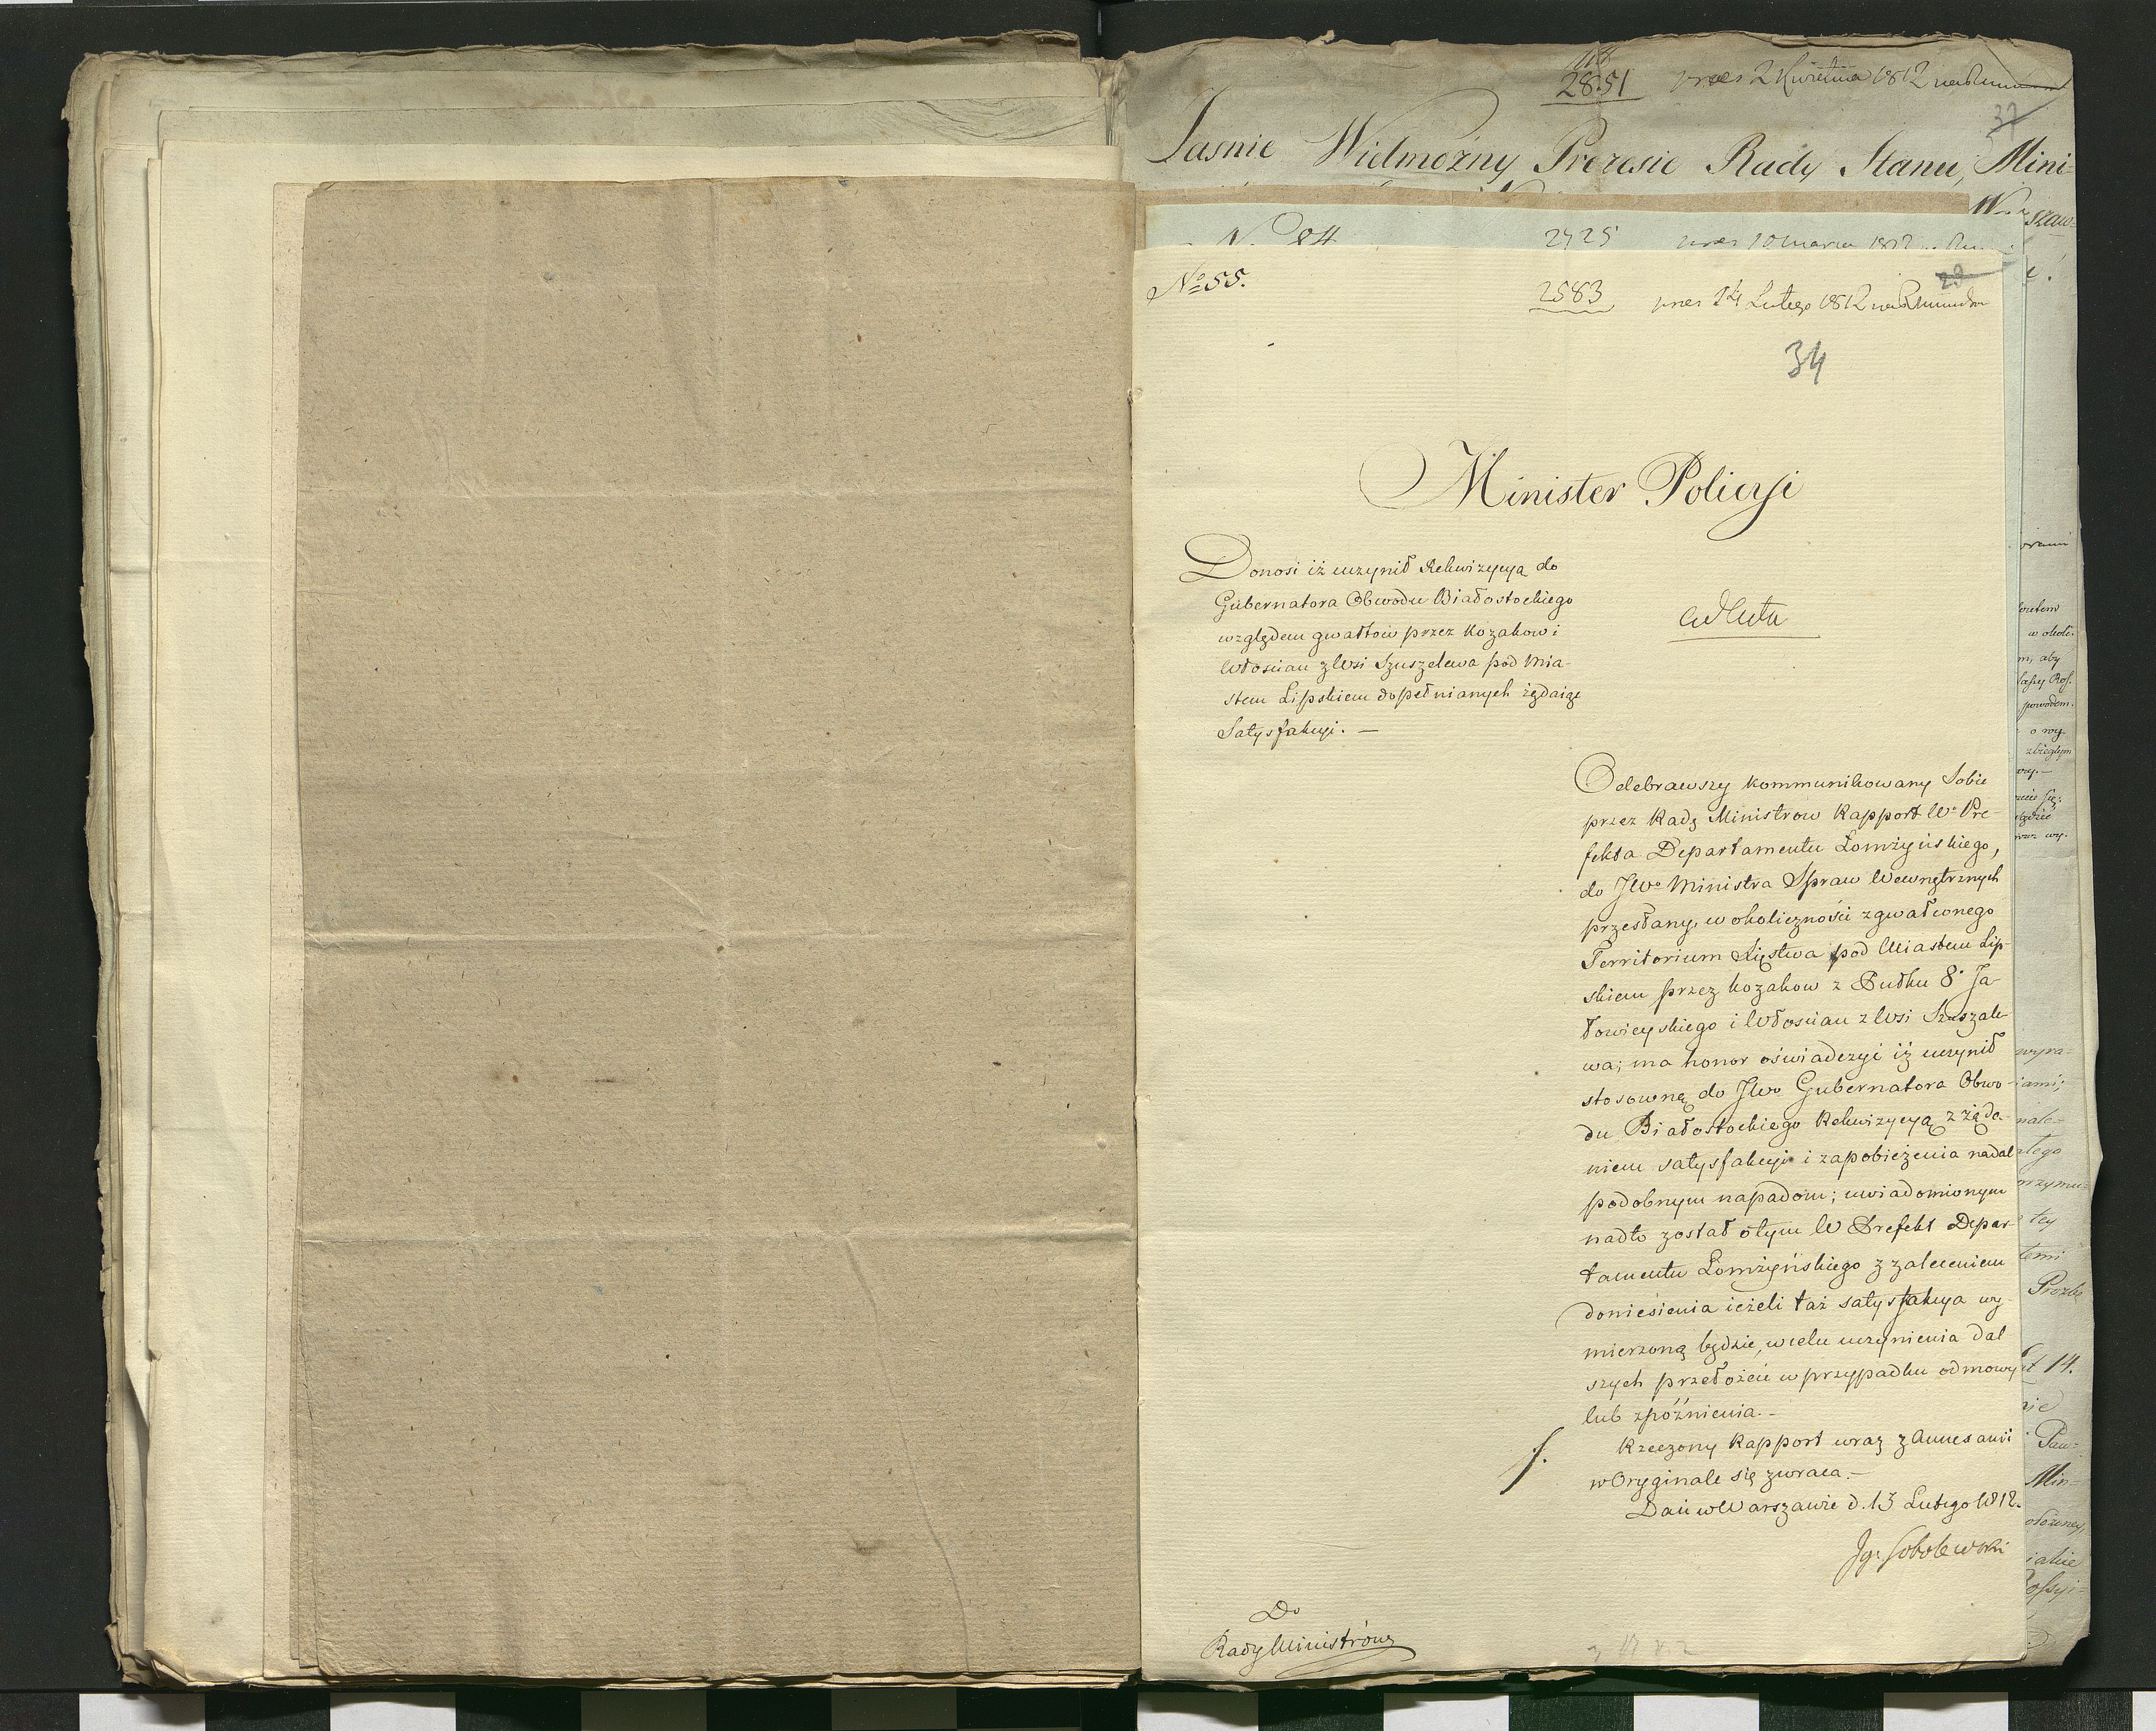 2851 pres 2 Kwietnia 1812
37
Jasnie Wielmożny Prezesie Rady Stanu, Mini-
No 84 2425 pres 10 marca 1812
No 55.
2583 pres 14 Lutego 1812
34
Minister Policyi
Donosi iż uczynił Rekwizycyą do
Gubernatora Obwodu Białostockiego
względem gwałtow przez kozakow i
Włoscian z Wsi Szuszelewa pod Mia-
stem Lipskiem dopełnianych żądaiąc
Satysfakcyi. —
ad acta
Odebrawszy kommunikowany Sobie
przez Radę Ministrow Rapport Wo Pre-
fekta Departamentu Łomżyńskiego,
do JWo Ministra Spraw Wewnętrznych
przesłany, w okoliczności zgwałconego
Territorium Xięstwa pod Miastem Lip-
skiem przez kozakow z Pułku 8o Ja-
łowieyskiego i Włoscian z Wsi Szuszale-
wa; ma honor oświadczyć iż uczynił
stosowną do JWo Gubernatora Obwo-
du Białostockiego Rekwizycyą z żąda-
niem satysfakcyi i zapobieżenia nadal
podobnym napadom; uwiadomionym
nadto został o tym W Prefekt Depar-
tamentu Łomżyńskiego z zaleceniem
doniesienia ieżeli taż satysfakcya wy-
mierzoną będzie, w celu uczynienia dal
szych przełożeń w przypadku odmowy
lub zpóźnienia. —
Rzeczony Rapport wraz z Annexami
w Oryginale się zwraca. —
Dań w Warszawie d. 13 Lutego 1812.
Ig. Sobolewski
Do
Rady Ministrów